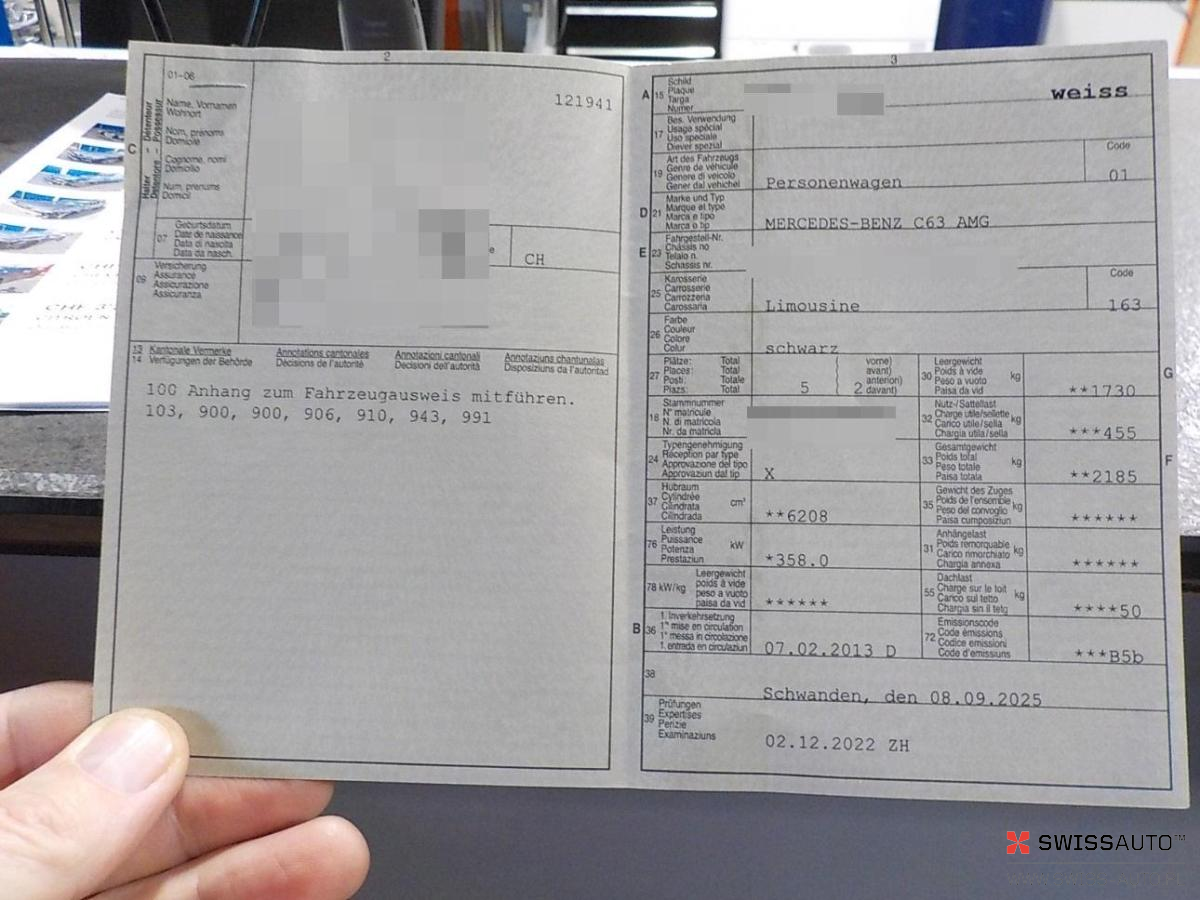 2
01-06
Name, Vornamen
Wohnort
Nom, prénoms
Domicile
Cognome, nomi
Domicilio
Num, prenums
Domicil
C
Halter - Détenteur
Detentore - Possessur
121941
07
Geburtsdatum
Date de naissance
Data di nascita
Data da nasch.
e
CH
09
Versicherung
Assurance
Assicurazione
Assicuranza
13
14
Kantonale Vermerke
Verfügungen der Behörde
Annotations cantonales
Décisions de l'autorité
Annotazioni cantonali
Decisioni dell'autorità
Annotaziuns chantunalas
Disposiziuns da l'autoritad
100 Anhang zum Fahrzeugausweis mitführen.
103, 900, 900, 906, 910, 943, 991
3
A 15
Schild
Plaque
Targa
Numer
weiss
17
Bes. Verwendung
Usage spécial
Uso speciale
Diever spezial
19
Art des Fahrzeugs
Genre de véhicule
Genere di veicolo
Gener dal vehichel
Personenwagen
Code
01
D 21
Marke und Typ
Marque et type
Marca e tipo
Marca e tip
MERCEDES-BENZ C63 AMG
E 23
Fahrgestell-Nr.
Châssis no
Telaio n.
Schassis nr.
25
Karosserie
Carrosserie
Carrozzeria
Carossaria
Limousine
Code
163
26
Farbe
Couleur
Colore
Colur
schwarz
27
Plätze: Total
Places: Total
Posti: Totale
Plazs: Total
5
vorne)
avant)
anteriori)
davant)
2
30
Leergewicht
Poids à vide
Peso a vuoto
Paisa da vid
kg
**1730
G
18
Stammnummer
N° matricule
N. di matricola
Nr. da matricla
32
Nutz-/Sattellast
Charge utile/sellette
Carico utile/sella
Chargia utila/sella
kg
***455
24
Typengenehmigung
Réception par type
Approvazione del tipo
Approvaziun dal tip
X
33
Gesamtgewicht
Poids total
Peso totale
Paisa totala
kg
**2185
F
37
Hubraum
Cylindrée
Cilindrata
Cilindrada
cm³
**6208
35
Gewicht des Zuges
Poids de l'ensemble
Peso del convoglio
Paisa cumposiziun
kg
******
76
Leistung
Puissance
Potenza
Prestaziun
kW
*358.0
31
Anhängelast
Poids remorquable
Carico rimorchiato
Chargia annexa
kg
******
78 kW/kg
Leergewicht
poids à vide
peso a vuoto
paisa da vid
******
55
Dachlast
Charge sur le toit
Carico sul tetto
Chargia sin il tetg
kg
****50
B 36
1. Inverkehrsetzung
1re mise en circulation
1a messa in circolazione
1. entrada en circulaziun
07.02.2013 D
72
Emissionscode
Code émissions
Codice emissioni
Code d'emissiuns
***B5b
38
Schwanden, den 08.09.2025
39
Prüfungen
Expertises
Perizie
Examinaziuns
02.12.2022 ZH
SWISSAUTO™